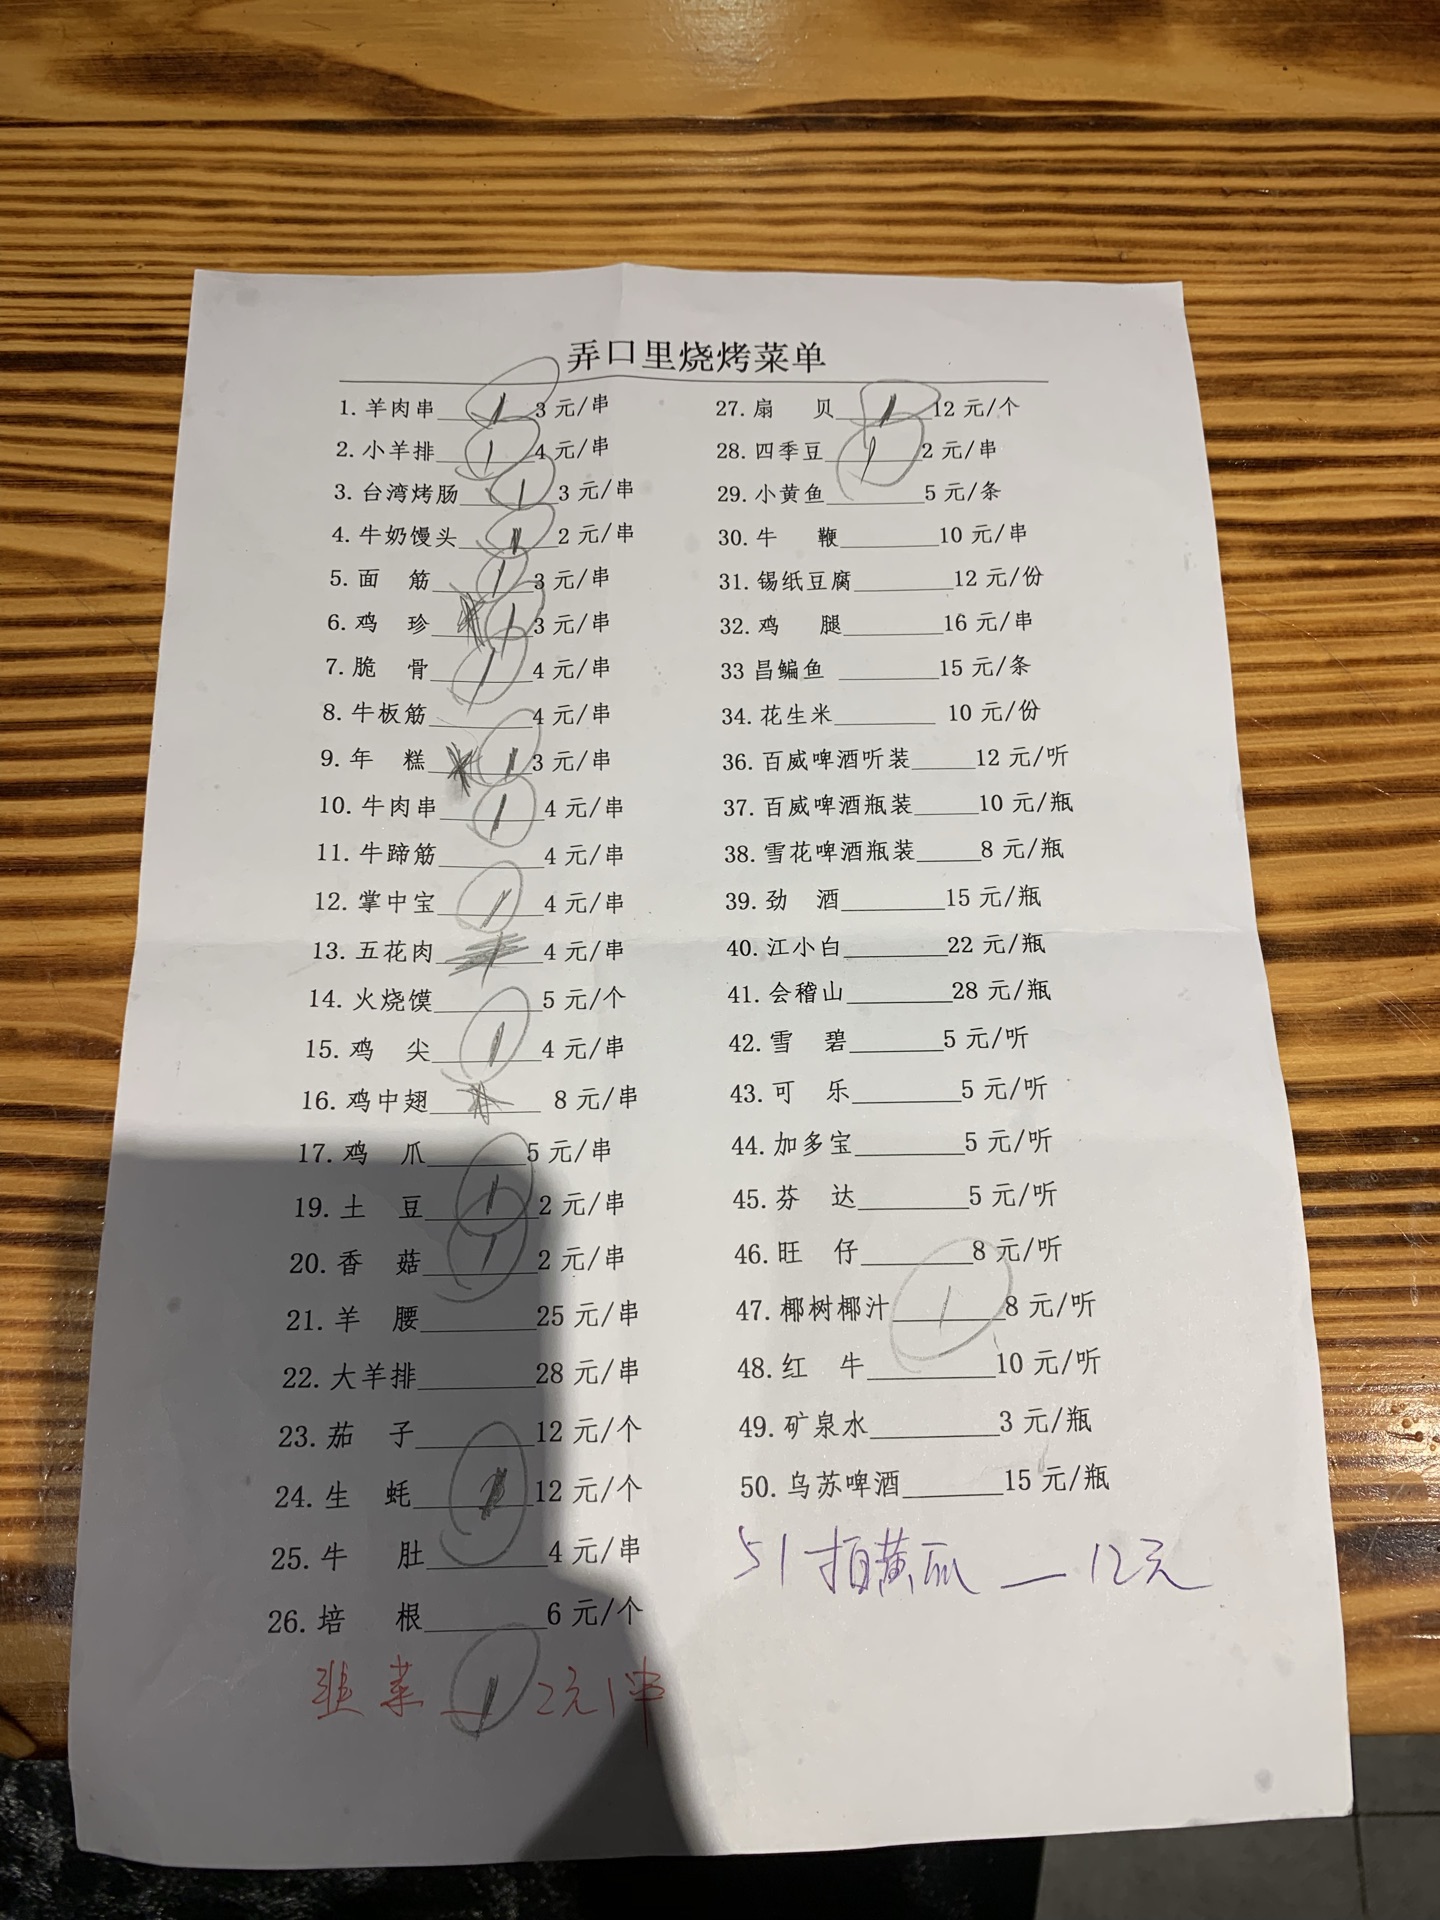 弄口里烧烤菜单
1.羊肉串 1 3元/串
2.小羊排 1 4元/串
3.台湾烤肠 1 3元/串
4.牛奶馒头 1 2元/串
5.面 筋 1 3元/串
6.鸡 珍 1 3元/串
7.脆 骨 1 4元/串
8.牛板筋 4元/串
9.年 糕 1 3元/串
10.牛肉串 1 4元/串
11.牛蹄筋 4元/串
12.掌中宝 1 4元/串
13.五花肉 4元/串
14.火烧馍 5元/个
15.鸡 尖 1 4元/串
16.鸡中翅 8元/串
17.鸡 爪 5元/串
19.土 豆 1 2元/串
20.香 菇 1 2元/串
21.羊 腰 25元/串
22.大羊排 28元/串
23.茄 子 12元/个
24.生 蚝 12元/个
25.牛 肚 4元/串
26.培 根 6元/个
韭菜 1 2元1串
27.扇 贝 1 12元/个
28.四季豆 1 2元/串
29.小黄鱼 5元/条
30.牛 鞭 10元/串
31.锡纸豆腐 12元/份
32.鸡 腿 16元/串
33昌鳊鱼 15元/条
34.花生米 10元/份
36.百威啤酒听装 12元/听
37.百威啤酒瓶装 10元/瓶
38.雪花啤酒瓶装 8元/瓶
39.劲 酒 15元/瓶
40.江小白 22元/瓶
41.会稽山 28元/瓶
42.雪 碧 5元/听
43.可 乐 5元/听
44.加多宝 5元/听
45.芬 达 5元/听
46.旺 仔 8元/听
47.椰树椰汁 1 8元/听
48.红 牛 10元/听
49.矿泉水 3元/瓶
50.乌苏啤酒 15元/瓶
51拍黄瓜 — 12元